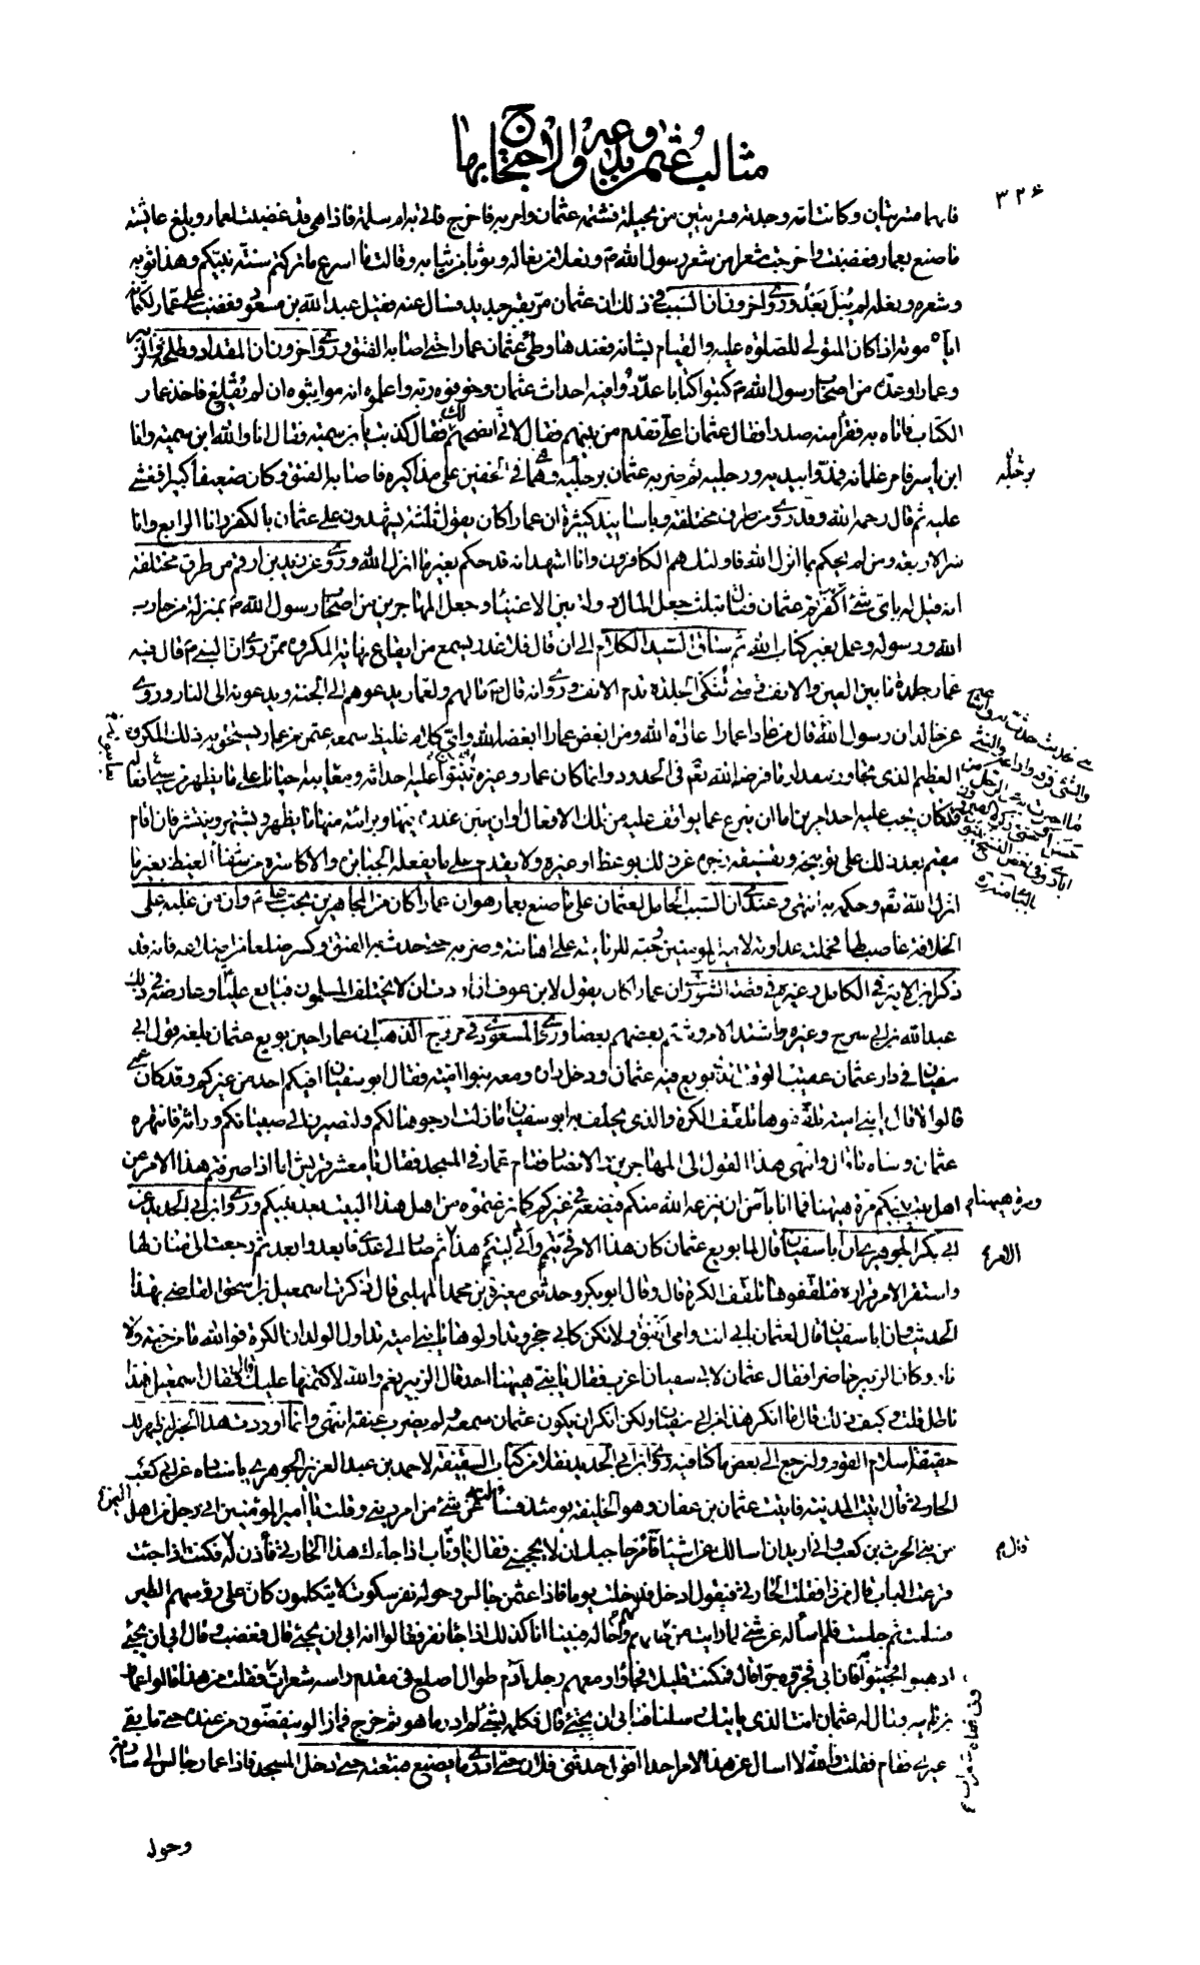 مثالب عثمن وبدعه والاحتجاج بها
٣٢٤
فانهما متربتان وكانت امه وجدته متربتين من بجيلة فشتمه عثمان وامر به فاخرج فاتي به ام سلمة فاذا هي قد غضبت لعمار وبلغ عايشة
ما صنع بعمار فغضبت واخرجت شعرا من شعر رسول الله ص ونعلا من نعاله وثوبا من ثيابه وقالت ما اسرع ما تركتم سنة نبيكم وهذا ثوبه
وشعره ونعله لم يبل بعد وروى اخرون ان السبب في ذلك ان عثمان مر بقبر جديد فسال عنه فقيل عبد الله بن مسعود فغضب على عمار لكتمانه
اياه موته اذ كان المتولي للصلوة عليه والقيام بشانه فعندها وطئ عثمان عمارا حتى اصابه الفتق وروى اخرون ان المقداد وطلحة والزبير
وعمارا وعدة من اصحاب رسول الله ص كتبوا كتابا عددوا فيه احداث عثمان وخوفوه ربه واعلموه انه مواثبوه ان لم يقلع فاخذ عمار
الكتاب فاتاه به فقرأ منه صدرا فقال عثمان اعلي تقدم من بينهم فقال لاني انصحهم لك فقال كذبت يا بن سمية فقال انا والله ابن سمية وانا
ابن ياسر فامر غلمانه فمدوا بيديه ورجليه ثم ضربه عثمان برجليه وهما في الخفين على مذاكيره فاصابه الفتق وكان ضعيفا كبيرا فغشي
برجليه
عليه ثم قال رحمه الله وقد روي من طرق مختلفة وباسانيد كثيرة ان عمارا كان يقول ثلثة يشهدون على عثمان بالكفر وانا الرابع وانا
شر الاربعة ومن لم يحكم بما انزل الله فاولئك هم الكافرون وانا اشهد انه قد حكم بغير ما انزل الله وروي عن زيد بن ارقم من طرق مختلفة
انه قيل له باي شئ اكفرتم عثمان فقال بثلث جعل المال دولة بين الاغنياء وجعل المهاجرين من اصحاب رسول الله ص بمنزلة من حارب
الله ورسوله وعمل بغير كتاب الله ثم ساق السيد الكلام الى ان قال فلا عذر يسمع من ايقاع نهاية المكروه ممن روي ان النبي ص قال فيه
عمار جلدة ما بين العين والانف فمتى تنكى الجلدة تدم الانف وروي انه قال ص ما لهم ولعمار يدعوهم الى الجنة ويدعونه الى النار وروى
عن خالد ان رسول الله قال من عادا عمارا عاداه الله ومن ابغض عمارا ابغضه الله واي كلام غليظ سمعه عثمن من عمار يستحق به ذلك المكروه
العظيم الذي يتجاوز مقدار ما فرضه الله تعم في الحدود وانما كان عمار وغيره يثبتوا عليه احداثه ومعايبه احيانا على ما يظهر من سيئ افعاله
فقد كان يجب عليه احد امرين اما ان ينزع عما يواقف عليه من تلك الافعال وان يبين عذره فيها وبراءته منها ما يظهر ويشتهر وينتشر فان اقام
مقيم بعد ذلك على توبيخه وتفسيقه زجره عن ذلك بوعظ او غيره ولا يقدم على ما يفعله الجبابرة والاكاسرة من شفاء الغيظ بغير ما
انزل الله تعم وحكم به انتهى وعندي ان السبب الحامل لعثمان على ما صنع بعمار هو ان عمارا كان من المجاهرين بحب علي ع وان من غلبه على
الخلافة غاصب لها فحملته عداوته لامير المؤمنين وحبه للرئاسة على اهانته وضربه حتى حدث به الفتق وكسر ضلعا من اضلاعه فانه قد
ذكر ابن الاثير في الكامل وغيره في قصة الشورى ان عمارا كان يقول لابن عوف ان اردت ان لا يختلف المسلمون فبايع عليا وعارضه في ذلك
عبد الله بن ابي سرح وغيره واشتد الامر وشتم بعضهم بعضا وروى المسعودي في مروج الذهب ان عمارا حين بويع عثمان بلغه قول ابي
سفيان في دار عثمان عقيب الوقت الذي بويع فيه عثمان ودخل داره ومعه بنو امية فقال ابو سفيان افيكم احد من غيركم وقد كان عمي
قالوا لا قال يا بني امية تلقفوها تلقف الكرة والذي يحلف به ابو سفيان ما زلت ارجوها لكم ولتصيرن الى صبيانكم وراثة فانتهره
عثمان وساءه ما قال وانهي هذا القول الى المهاجرين والانصار فقام عمار في المسجد فقال يا معشر قريش اما اذا صرفتم هذا الامر عن
اهل بيت نبيكم مرة هيهنا فما انا بآمن ان ينزعه الله منكم فيضعه في غيركم كما نزعتموه من اهل هذا البيت بعد نبيكم وروى ابن ابي الحديد عن
ومرة هيهنا م
ابي بكر الجوهري ان ابا سفيان قال لما بويع عثمان كان هذا الامر في تيم وانى لتيم هذا ثم صار الى عدي فابعد وابعد ثم رجعت الى منازلها
الامر ع
واستقر الامر قراره فتلقفوها تلقف الكرة قال وقال ابو بكر وحدثني مغيرة بن محمد المهلبي قال ذاكرت اسمعيل بن اسحق القاضي بهذا
الحديث وان ابا سفيان قال لعثمان بابي انت وامي انفق ولا تكن كابي حجر وتداولوها يا بني امية تداول الولدان الكرة فوالله ما من جنة ولا
نار وكان الزبير حاضرا فقال عثمان لابي سفيان اعزب فقال يا بني هيهنا احد قال الزبير نعم والله لاكتمنها عليك فقال اسمعيل هذا
باطل قلت وكيف ذلك قال ما انكر هذا من ابي سفيان ولكن انكر ان يكون عثمان سمعه ولم يضرب عنقه انتهى وانما اوردت هذا الخبر ليظهر لك
حقيقة اسلام القوم ولنرجع الى بعض ما كنا فيه روى ابن ابي الحديد نقلا من كتاب السقيفة لاحمد بن عبد العزيز الجوهري باسناده عن ابي كعب
الحارثي قال اتيت المدينة فاتيت عثمان بن عفان وهو الخليفة يومئذ فسالته عن شئ من امر ديني وقلت يا امير المؤمنين اني رجل من اهل اليمن
من بني الحرث بن كعب واني اريد ان اسالك عن اشياء فامر حاجبك ان لا يحجبني فقال يا وثاب اذا جاءك هذا الحارثي فأذن له فكنت اذا جئت
قال م
قرعت الباب قال من ذا فقلت الحارثي فيقول ادخل فدخلت يوما فاذا عثمن جالس وحوله نفر سكوت لا يتكلمون كان على رؤسهم الطير
فسلمت ثم جلست فلم اسأله عن شئ لما رايت من حالهم وحاله فبينا انا كذلك اذ جاء نفر فقالوا انه ابى ان يجئ قال فغضب وقال ابى ان يجئ
اذهبوا فجيئوا به فان ابى فجروه جرا قال فمكثت قليلا فجاؤا ومعهم رجل آدم طوال اصلع في مقدم راسه شعرات فقلت من هذا قالوا عمار
بن ياسر فقال له عثمان انت الذي ياتيك رسلنا فتابى ان تجئ قال فكلمه بشئ لم ادر ما هو ثم خرج فما زالوا ينفضون من عنده حتى ما بقي
غيري فقام فقلت والله لا اسال عن هذا الامر احدا اقول حدثني فلان حتى ادري ما يصنع فتبعته حتى دخل المسجد فاذا عمار جالس الى سارية
وحوله